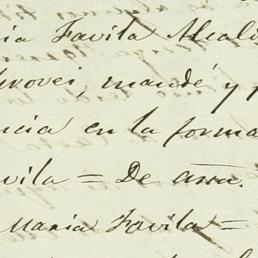 ria Favila Alcal
provei, mandé y f
ncia en la forma
vila = De assa.
Maria Favila =